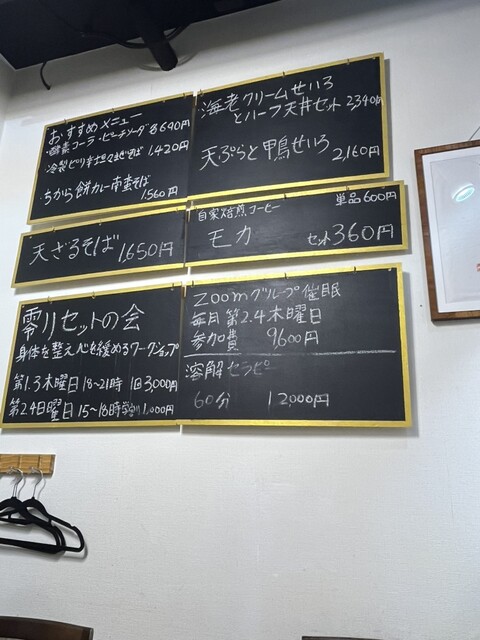 おすすめメニュー
・酵素コーラ・ピーチソーダ 各690円
・冷製ピリ辛担々まぜそば 1,420円
・ちから餅カレー南蛮そば
1,560円
海老クリームせいろ
とハーフ天丼セット 2,340円
天ぷらと鴨せいろ
2,160円
天ざるそば 1,650円
自家焙煎コーヒー 単品600円
モカ セット360円
零リセットの会
身体を整え心を緩めるワークショップ
第1.3木曜日 18〜21時 1回3,000円
第2.4日曜日 15〜18時 1,000円
Zoomグループ催眠
毎月第2.4木曜日
参加費 9,600円
溶解セラピー
60分 12,000円